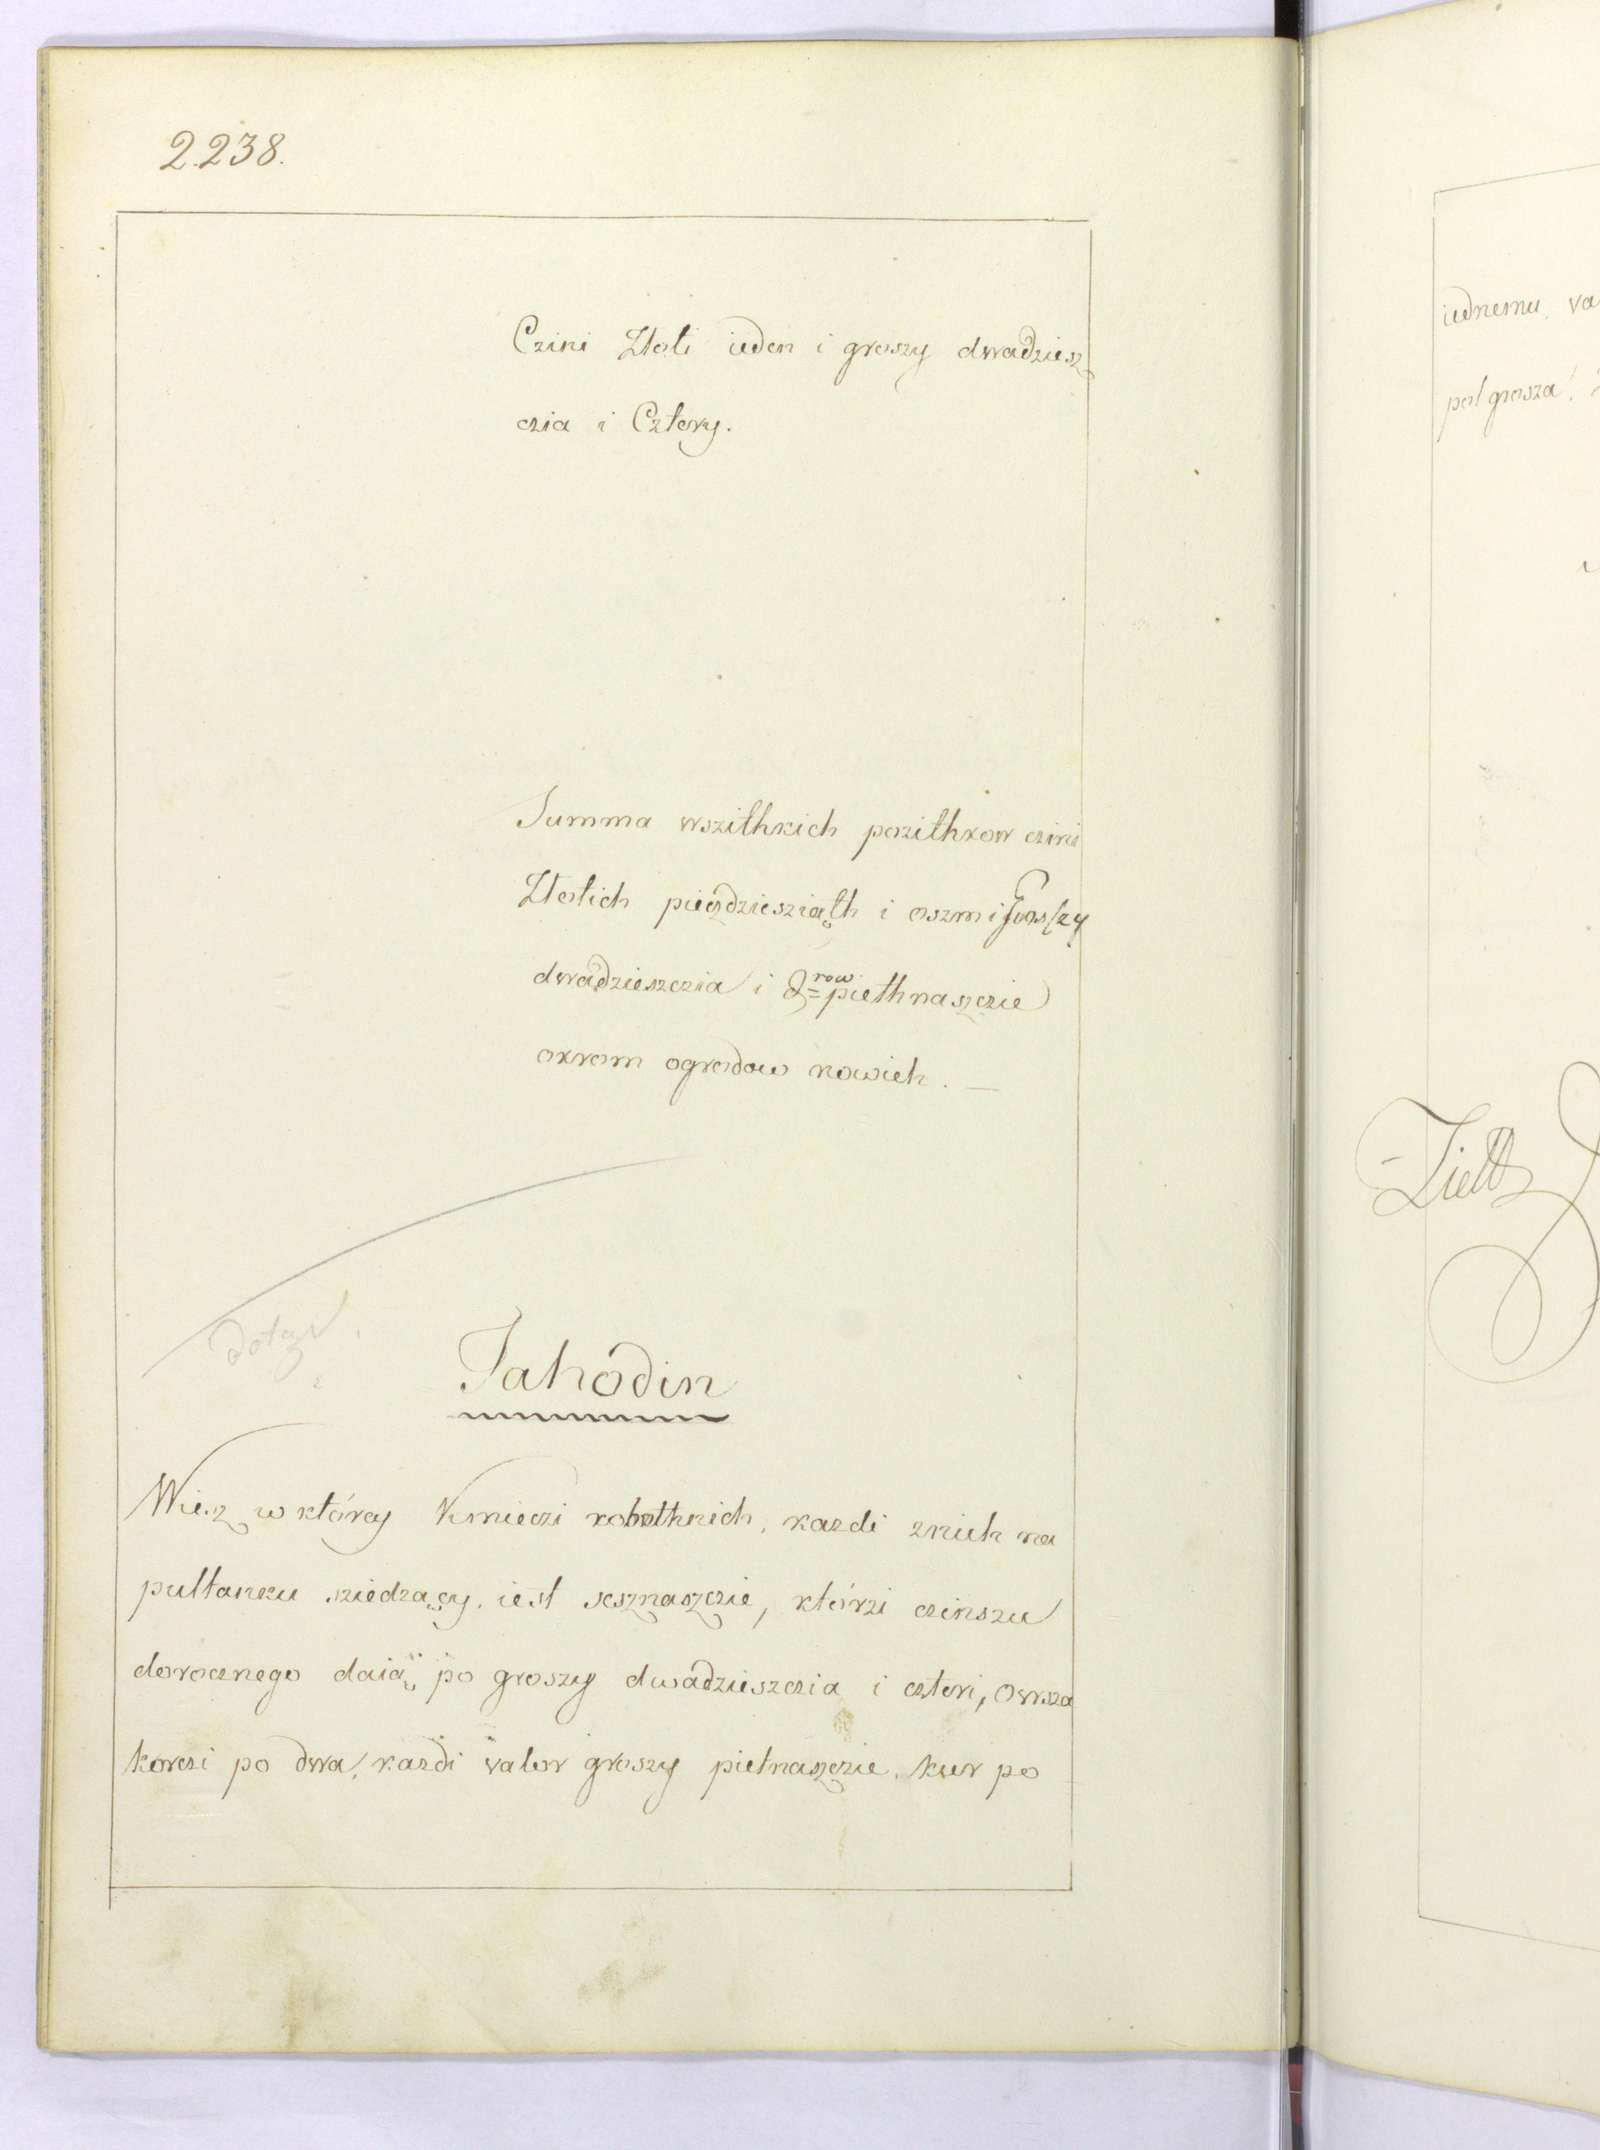 2238.
Czini Złoti ieden i groszy dwadziesz
czia i Cztery.
Summa wszithkich pozithkow czini
Złotich pięądziesziąth i oszm i Groszy
dwadzieszczia i drow piethnaszczie
okrom ogrodow nowich. —
Jahodin
Wiesz w którey Kmieczi robothnich, kazdi znich na
pułłanku sziedzący, iest sesznaszczie, którzi czinszu
dorocznego daią po groszy dwadzieszczia i czteri, Owsza
korczi po dwa, kazdi valor groszy pietnaszczie, kur po
iednemu, va
pol grosza,